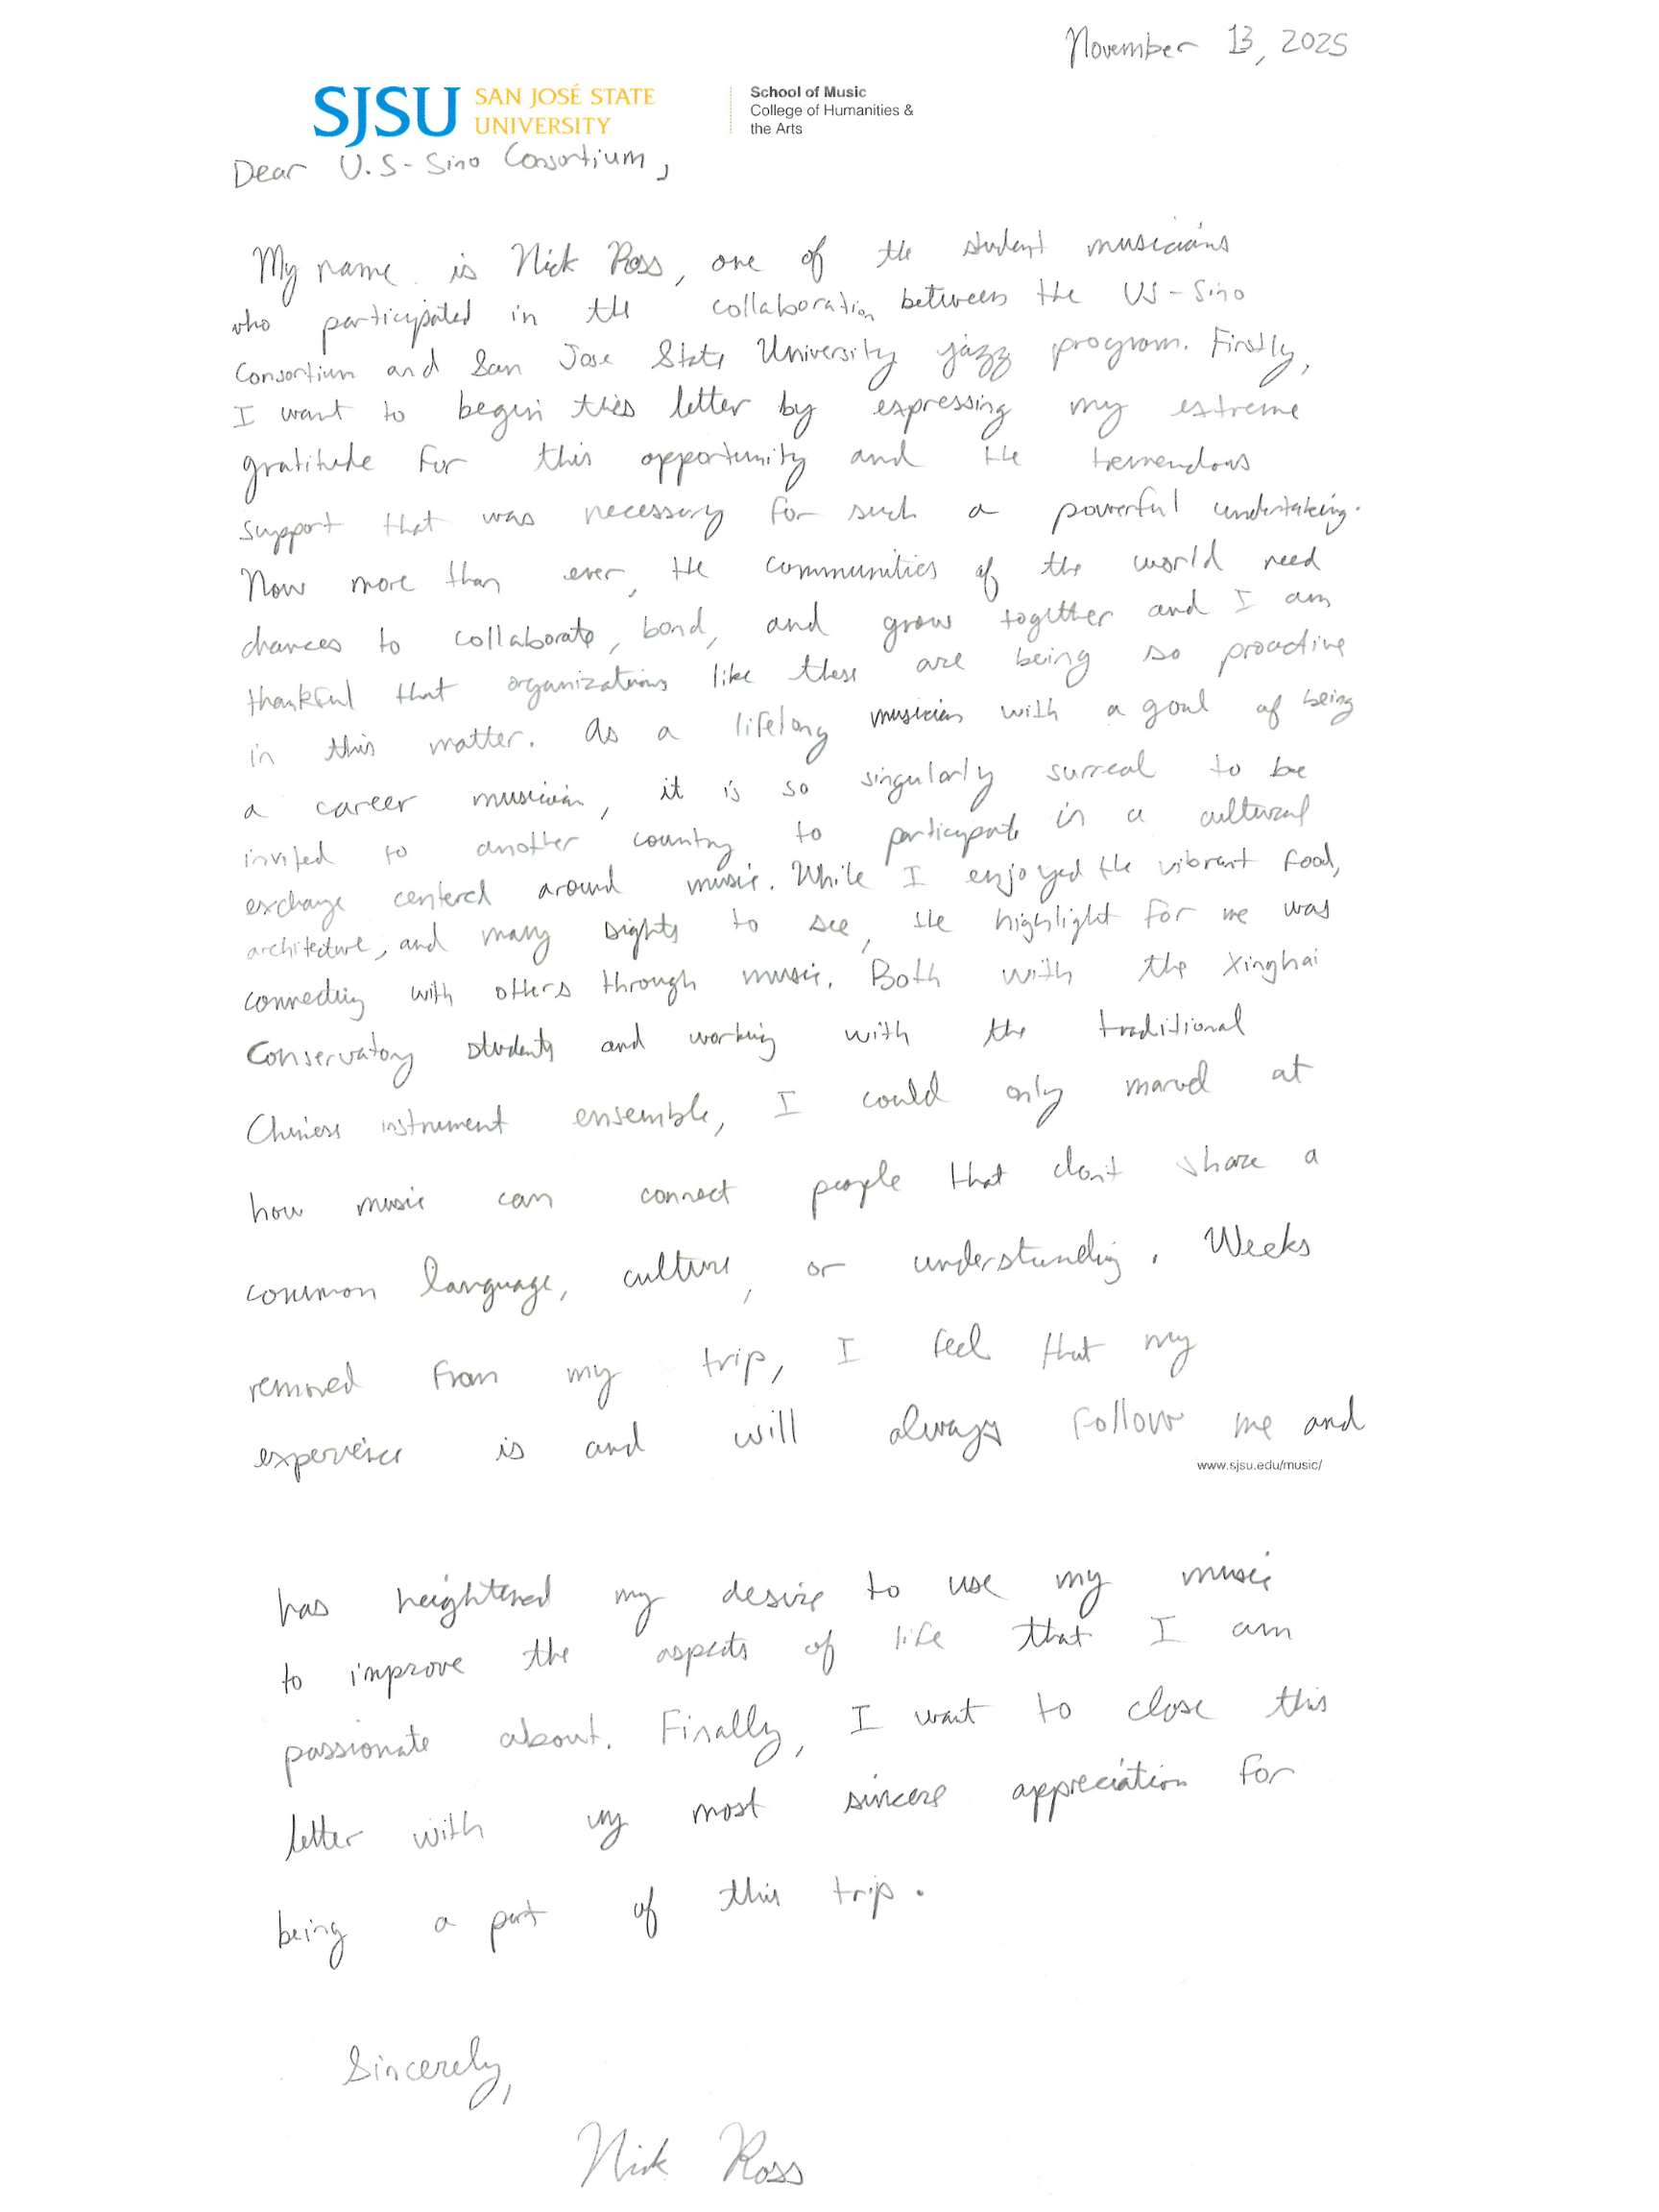 November 13, 2025
SJSU SAN JOSÉ STATE
UNIVERSITY
School of Music
College of Humanities &
the Arts
Dear U.S-Sino Consortium,
My name is Nick Ross, one of the student musicians
who participated in the collaboration between the US-Sino
Consortium and San Jose State University jazz program. Firstly,
I want to begin this letter by expressing my extreme
gratitude for this opportunity and the tremendous
support that was necessary for such a powerful undertaking.
Now more than ever, the communities of the world need
chances to collaborate, bond, and grow together and I am
thankful that organizations like these are being so proactive
in this matter. As a lifelong musician with a goal of being
a career musician, it is so singularly surreal to be
invited to another country to participate in a cultural
exchange centered around music. While I enjoyed the vibrant food,
architecture, and many sights to see, the highlight for me was
connecting with others through music. Both with the Xinghai
Conservatory students and working with the traditional
Chinese instrument ensemble, I could only marvel at
how music can connect people that don't share a
common language, culture, or understanding. Weeks
removed from my trip, I feel that my
experience is and will always follow me and
www.sjsu.edu/music/
has heightened my desire to use my music
to improve the aspects of life that I am
passionate about. Finally, I want to close this
letter with my most sincere appreciation for
being a part of this trip.
Sincerely,
Nick Ross